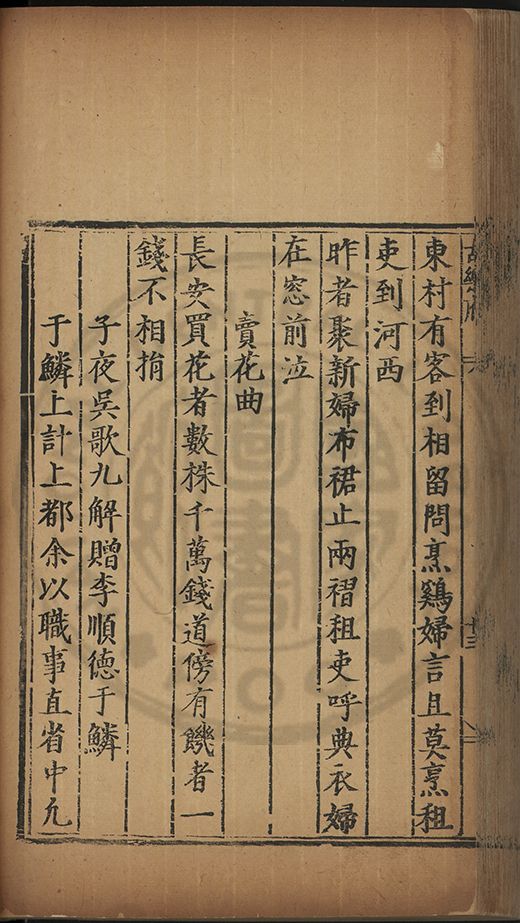 東村有客到相留問烹鷄婦言且莫烹租
吏到河西
昨者聚新婦布裙止兩褶租吏呼典衣婦
在窓前泣
賣花曲
長安買花者數株千萬錢道傍有饑者一
錢不相捐
子夜吳歌九解贈李順德于鱗
于鱗上計上都余以職事直省中凢